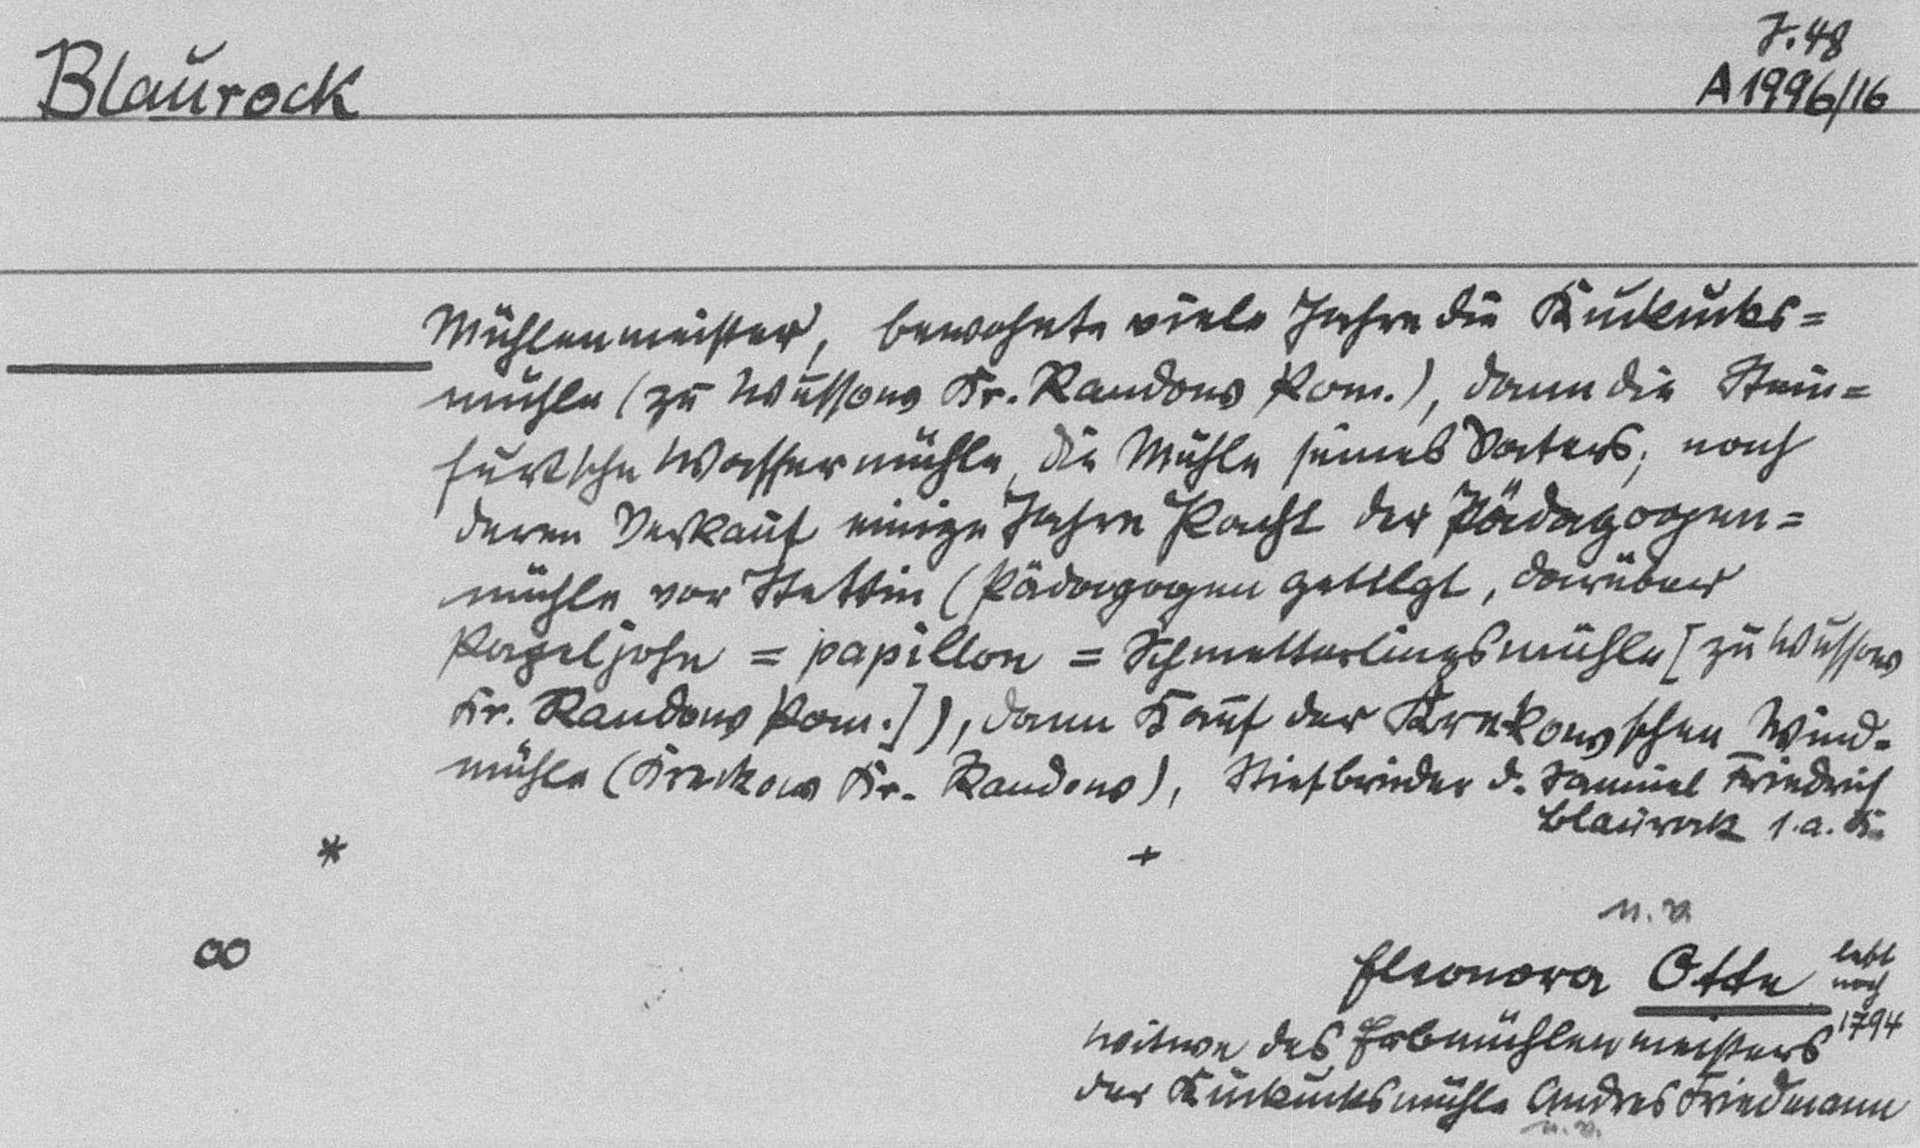 J. 48
Blaurock
A 1996/16
Mühlenmeister, bewohnte viele Jahre die Kuckucks=
mühle (zu Wussow Kr. Randow Pom.), dann die Stein=
furtsche Wassermühle, die Mühle seines Vaters; nach
deren Verkauf einige Jahre Pacht der Pädagogen=
mühle vor Stettin (Pädagogen getilgt, darüber
Pageljohn = papillon = Schmetterlingsmühle [zu Wussow
Kr. Randow Pom.]), dann Kauf der Krekowschen Wind-
mühle (Kreckow Kr. Randow), Stiefbruder d. Samuel Friedrich
Blaurock s. a. K.
* +
n. v.
∞ Eleonora Otte lebt
noch
1794
Witwe des Erbmühlenmeisters
der Kuckucksmühle Andres Friedmann
n. v.